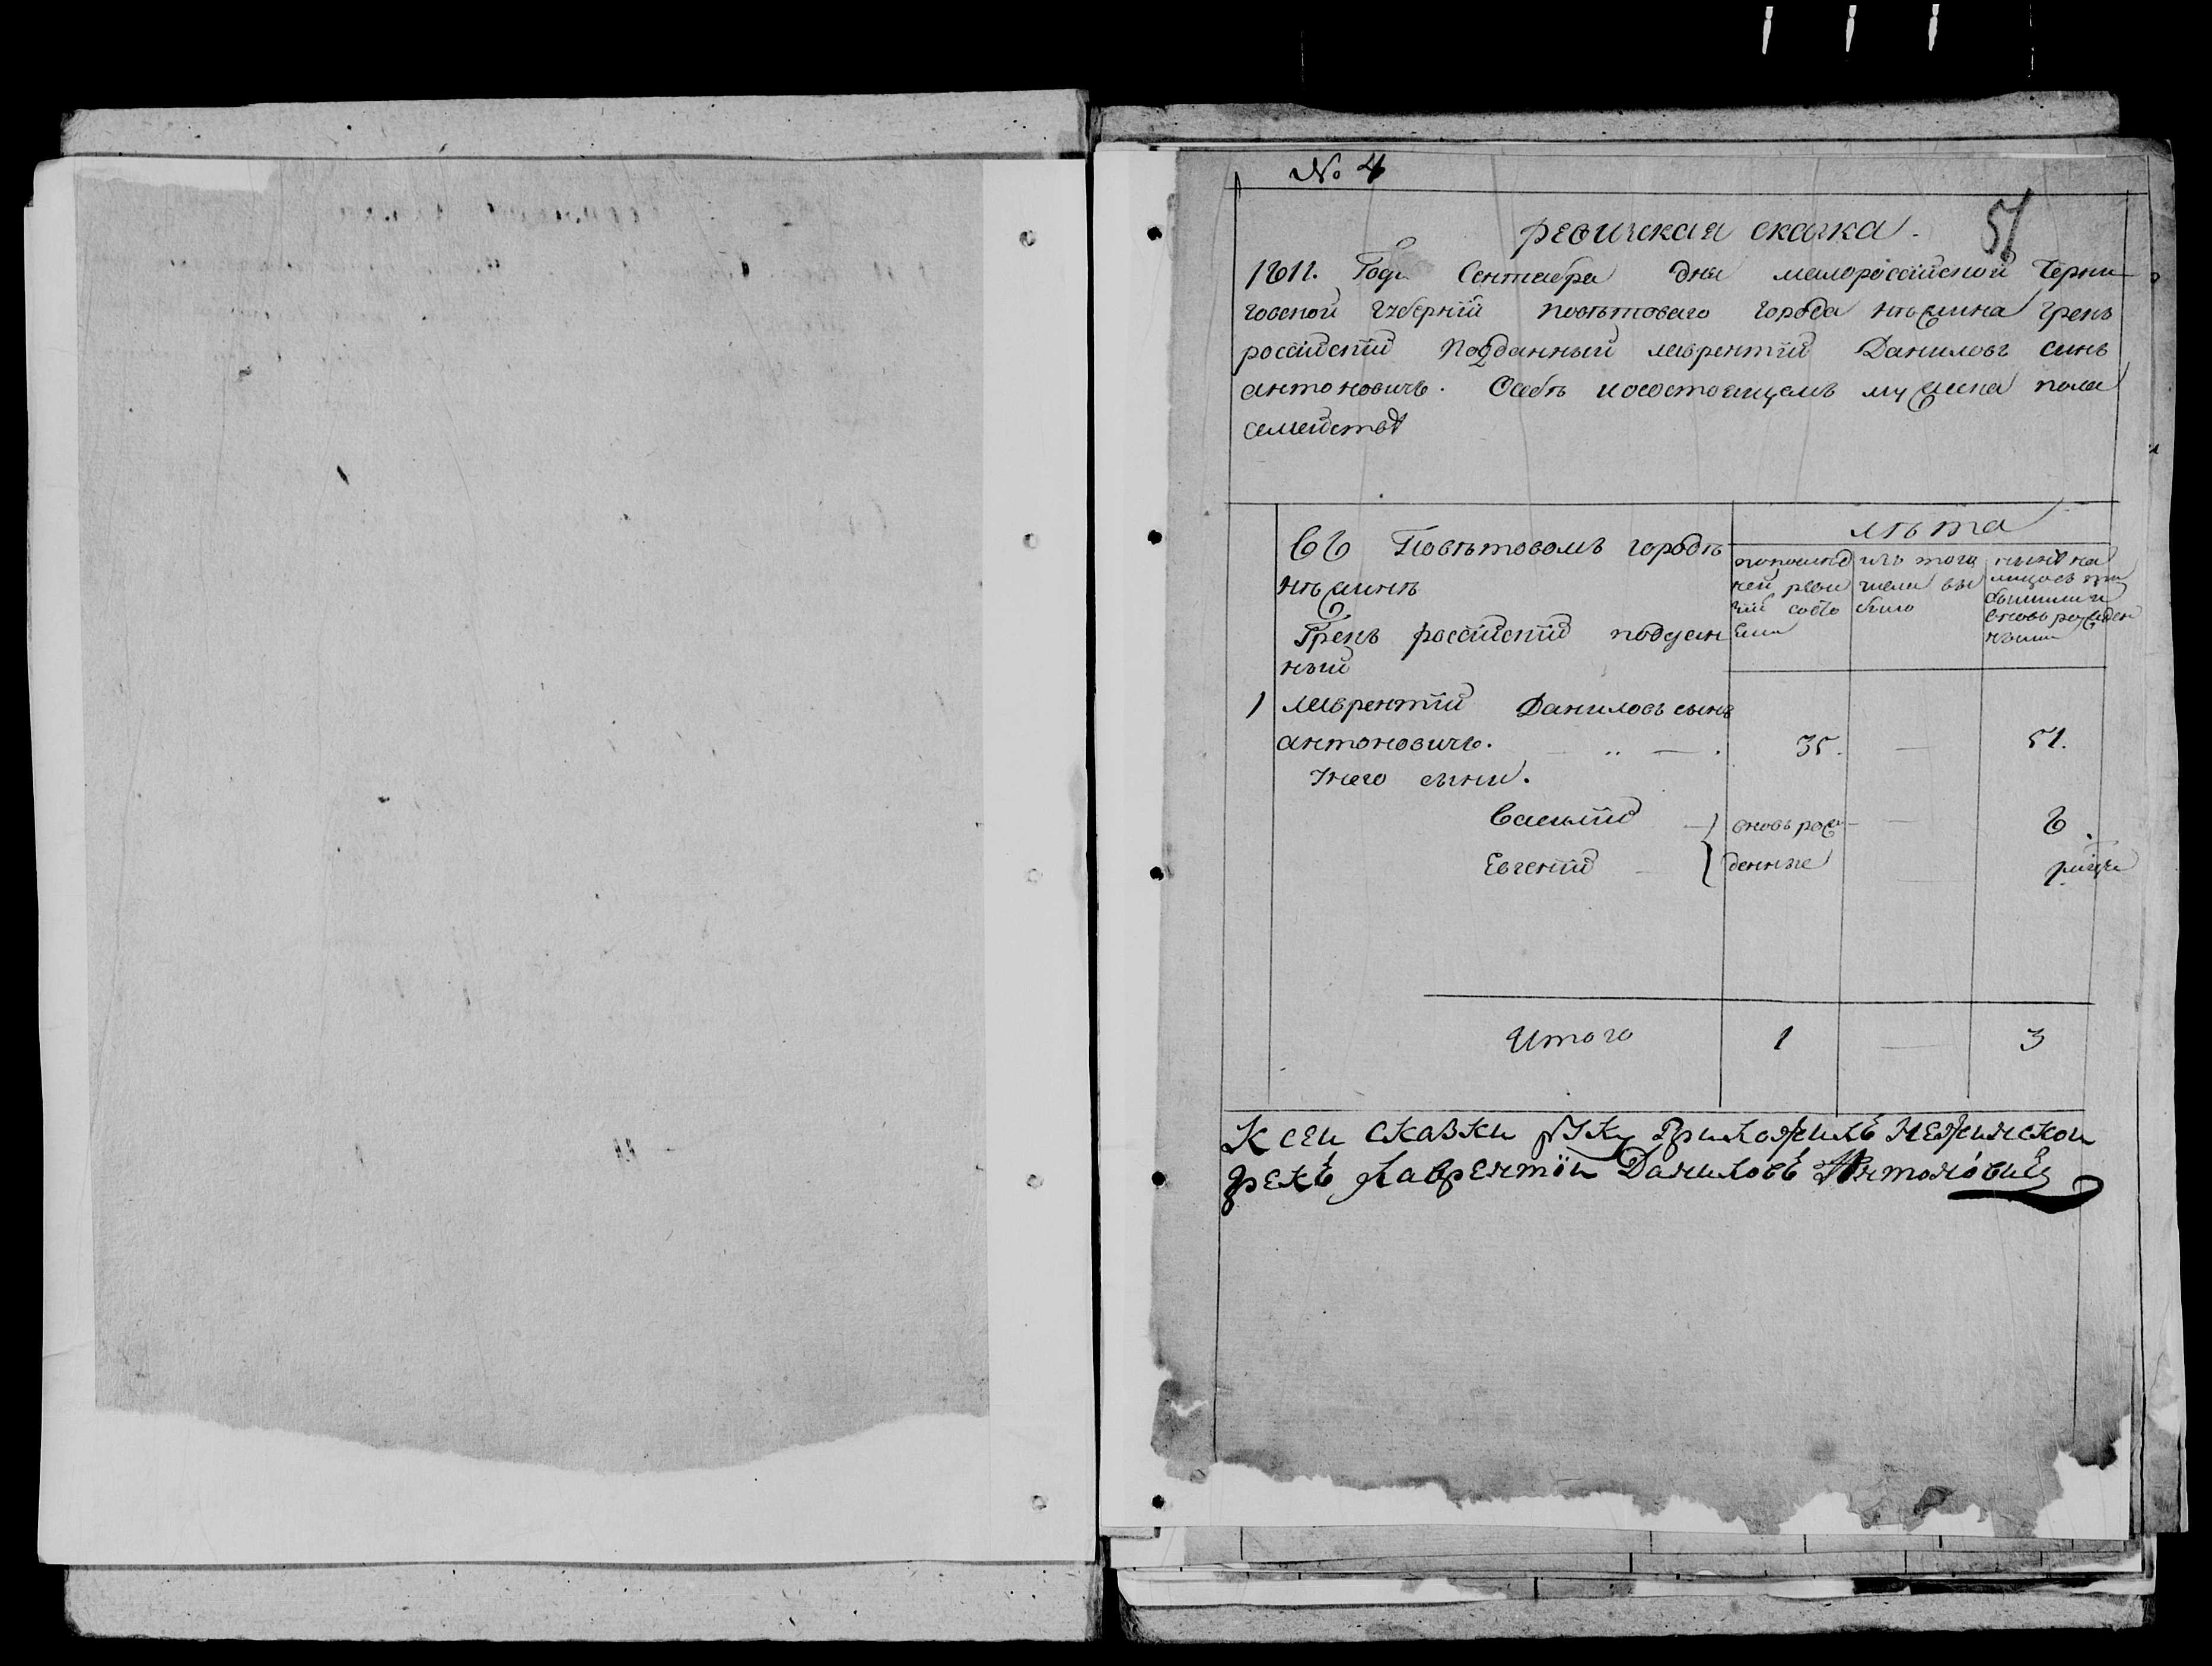 № 4
51
ревижская скаска.
1811. Года Сентебра дня малороссійской Черни-
говской губерніи повѣтоваго города нѣжина грекъ
россійскій подданный лаврентій Даниловъ синъ
антоновичъ. О себѣ и о состоящемъ мужеска пола
семействѣ
въ Повѣтовомъ городѣ
нѣжинѣ
Грекъ россійскій поддан
ный
лѣта
попослѣд
ней реви
зіи состо
яли
изъ того
числа вы
было
нынѣ на
лицосъ при
былими и
вновь рожден
ными
1 лаврентій Даниловъ сынъ
антоновичъ. 35. — 51.
У него сыни.
Василій — } вновь рож- — 6.
Евгеній — } денные
1.
Итого 1 — 3
К сеи сказки руку Приложилъ Нежинскои
грекъ Лаврентіи Даниловъ Антоновичъ